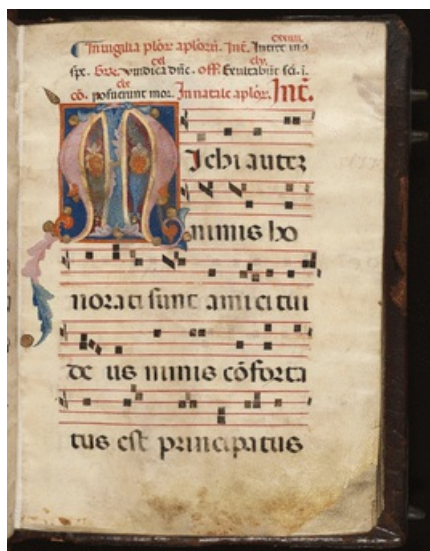 In vigilia plõr aplõrũ. Int. Intret ĩ ɔ̃
spc. Gr̃. Vindica dñe. Off. Exultabũt sci. i.
cõ. posuerunt mor. In natale aplõr. Int.
Michi autez
nimis ho
norati sunt amici tui
de us nimis cõforta
tus est principatus